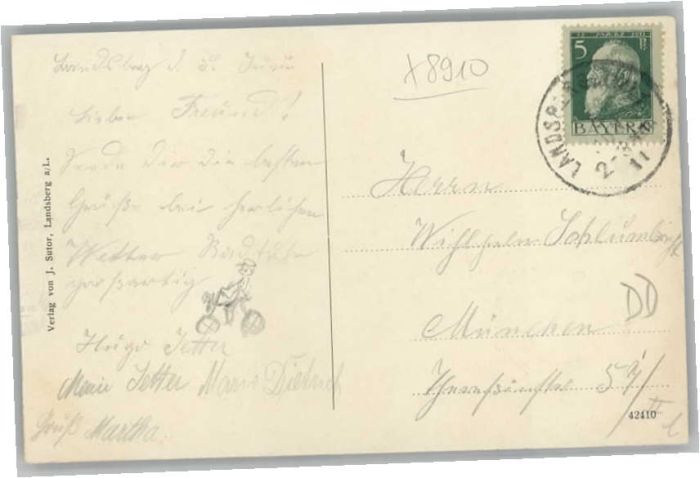 Landsberg d. 5. Juni
Lieber Freund!
Sende Dir die besten
Grüße bei herlichen
Wetter Radtute
großartig
Hugo Jetter
Marie Jetter Marie Dietrich
Gruß Martha.
Verlag von J. Sutor, Landsberg a/L.
x8910
5 Pf
BAYERN
LANDSBERG
2-3
11
Herrn
Wilhelm
München
DD
42410